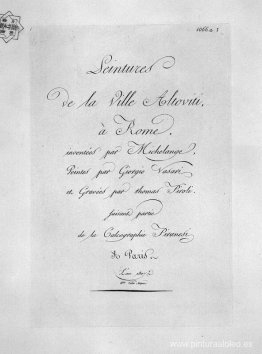 1066 a 1
Peintures
de la Ville Altoviti,
à Rome,
inventées par Michelange,
Peintes par Giorgio Vasari
et Gravées par thomas Piroli.
faisant partie
de la Calcographie Piranesi
à Paris.
www.pinturasaloleo.es